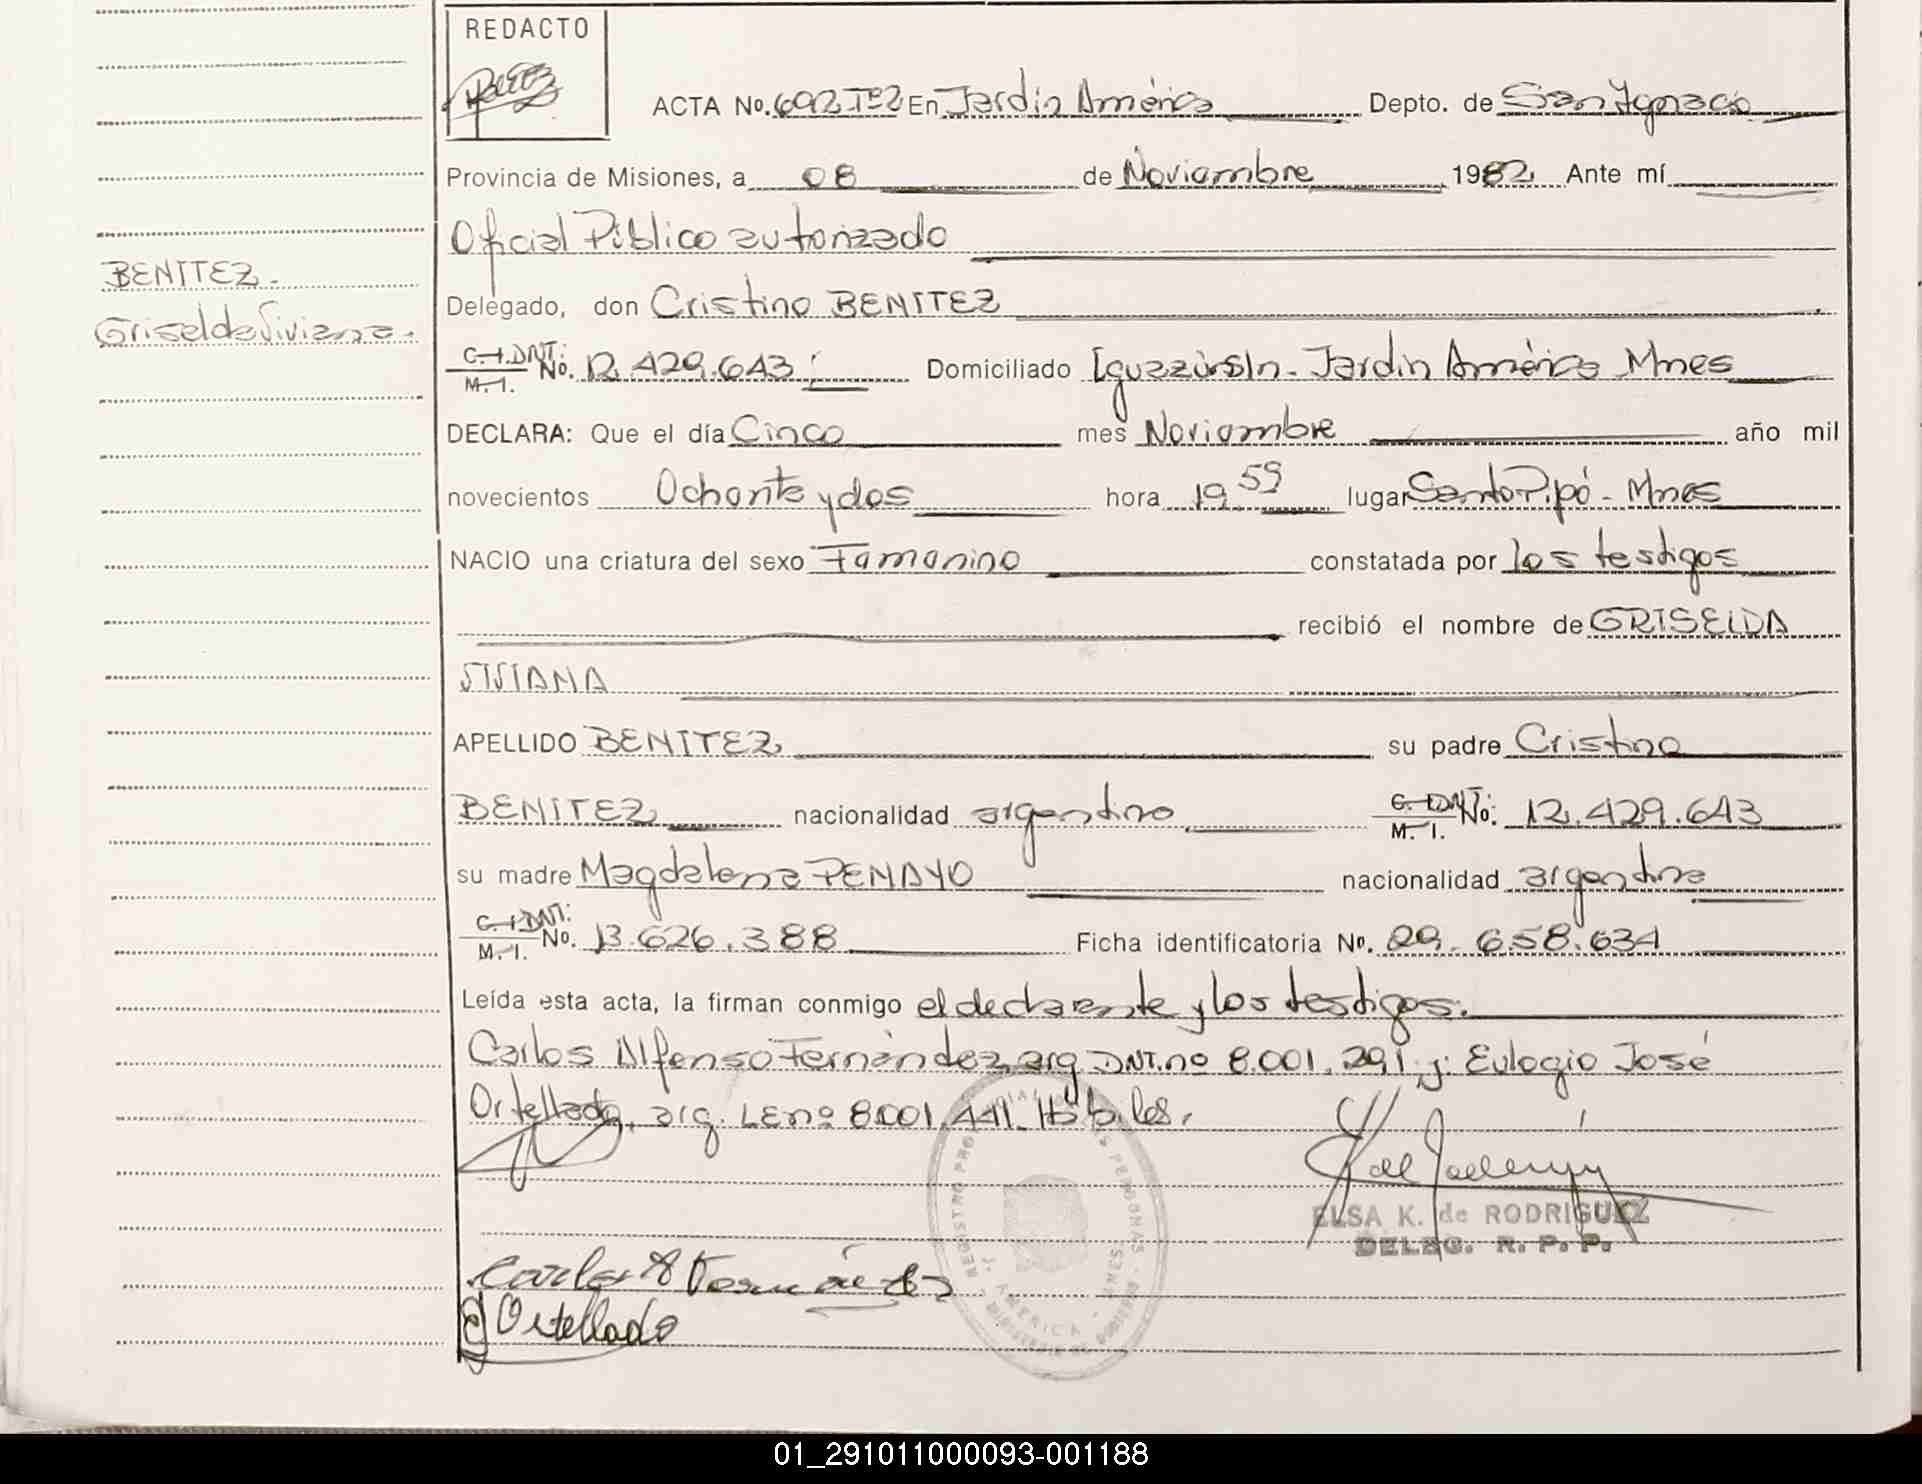 REDACTO
ACTA No. 692 Tº2 En Jardin América Depto. de San Ignacio
Provincia de Misiones, a 08 de Noviembre 1982 Ante mí
Oficial Público autorizado
BENITEZ.
Delegado, don Cristino BENITEZ
Griselda Viviana.
C.I. DNI: M.I. No. 12.429.643 Domiciliado Iguazú s/n. Jardin América Mnes
DECLARA: Que el día Cinco mes Noviembre año mil
novecientos Ochenta y dos hora 19.59 lugar Santo Pipó - Mnes
NACIO una criatura del sexo Femenino constatada por los testigos
recibió el nombre de GRISELDA
VIVIANA
APELLIDO BENITEZ su padre Cristino
BENITEZ nacionalidad argentino C.I. DNI: M.I. No. 12.429.643
su madre Magdalena PENAYO nacionalidad argentina
C.I. DNI: M.I. No. 13.626.388 Ficha identificatoria No. 29.658.634
Leída esta acta, la firman conmigo el declarante y los testigos.
Carlos Alfonso Fernández arg DNI. nº 8.001.291 y: Eulogio José
Ortellado, arg. LE nº 8.001.441. Hábiles.
ELSA K. de RODRIGUEZ
DELEG. R. P. P.
Carlos A Fernández
E Ortellado
REGISTRO PROVINCIAL DE LAS PERSONAS
J. AMERICA - MNES.
MINISTERIO DE GOBIERNO
01_291011000093-001188